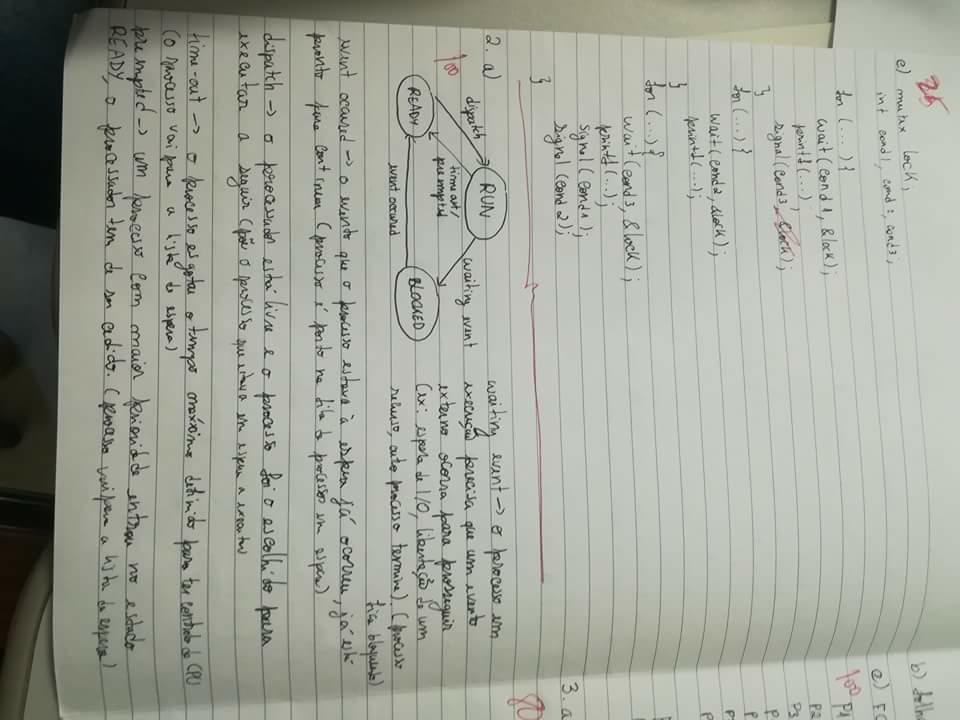 25
e) mutex lock;
int cond1, cond2, cond3;
for (...) {
wait(cond1, &lock);
printf(...);
signal(cond3, &lock);
}
for (...) {
wait(cond2, &lock);
printf(...);
}
for (...) {
wait(cond3, &lock);
printf(...);
signal(cond1);
signal(cond2);
}
2. a)
100
RUN
dispatch
time out/
preempted
waiting event
READY
BLOCKED
event occured
waiting event → o processo em
execução precisa que um evento
externo ocorra para prosseguir
(ex: espera de I/O, libertação de um
recurso, outro processo termine). (processo
fica bloqueado)
event occured → o evento que o processo estava à espera já ocorreu, já está
pronto para continuar (processo é posto na fila de processos em espera)
dispatch → o processador está livre e o processo foi o escolhido para
executar a seguir (põe o processo que estava em espera a executar
time-out → o processo esgotou o tempo máximo definido para ter controlo do CPU
(o processo vai para a lista de espera)
preempted → um processo com maior prioridade entrou no estado
READY, o processador tem de ser cedido. (processo vai para a lista de espera)
b) folha
e) FC
100
P1
P2
P3
P
P
P
P
3. a
80